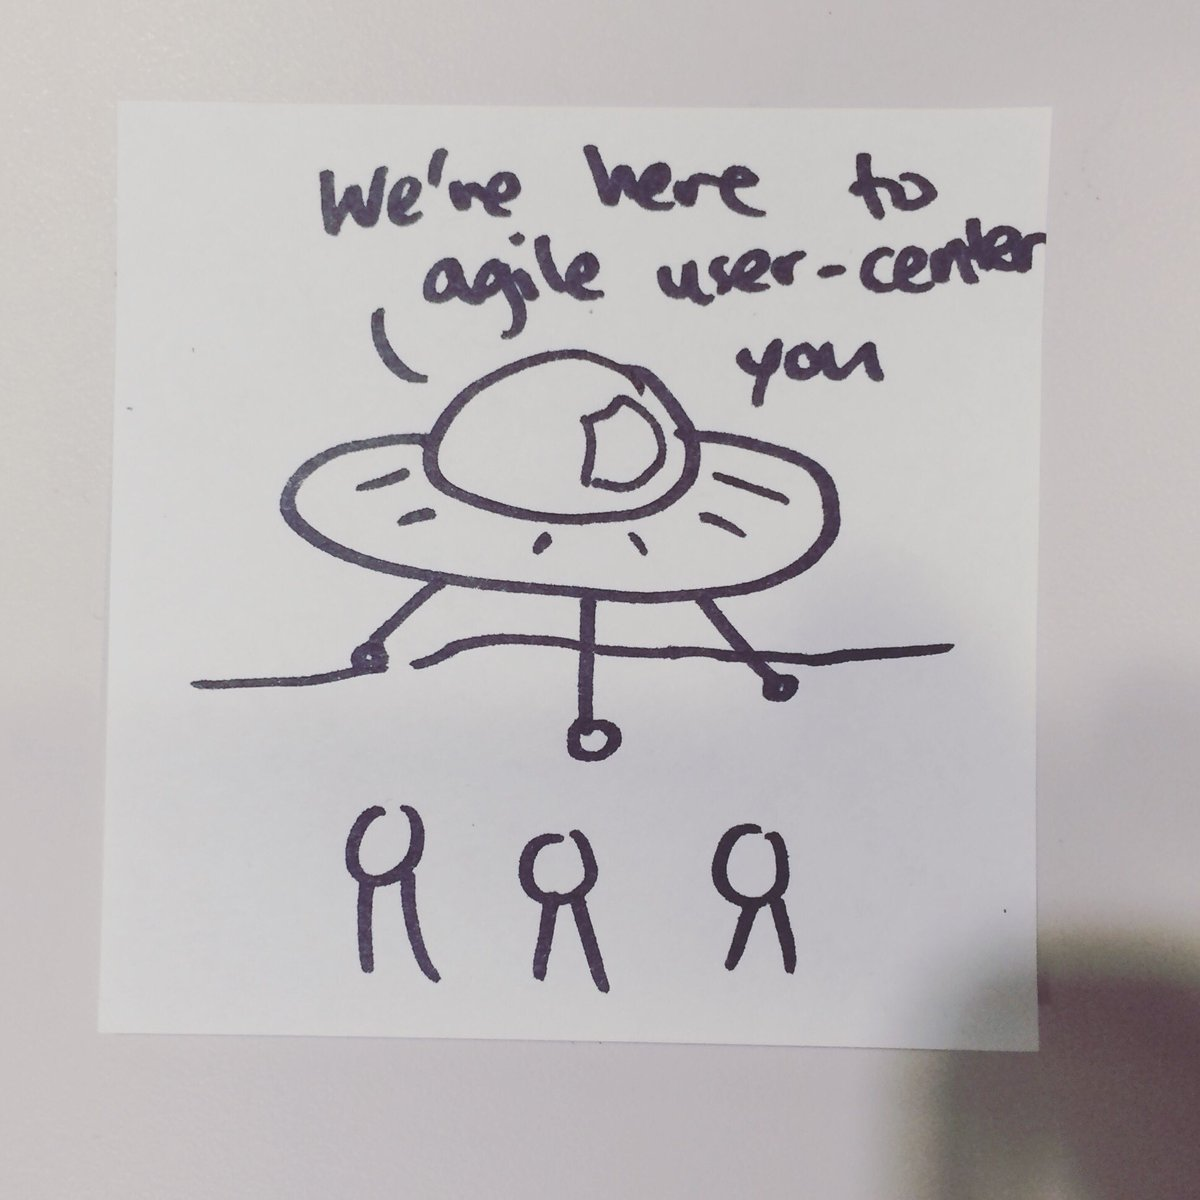 We're here to
agile user-center
you